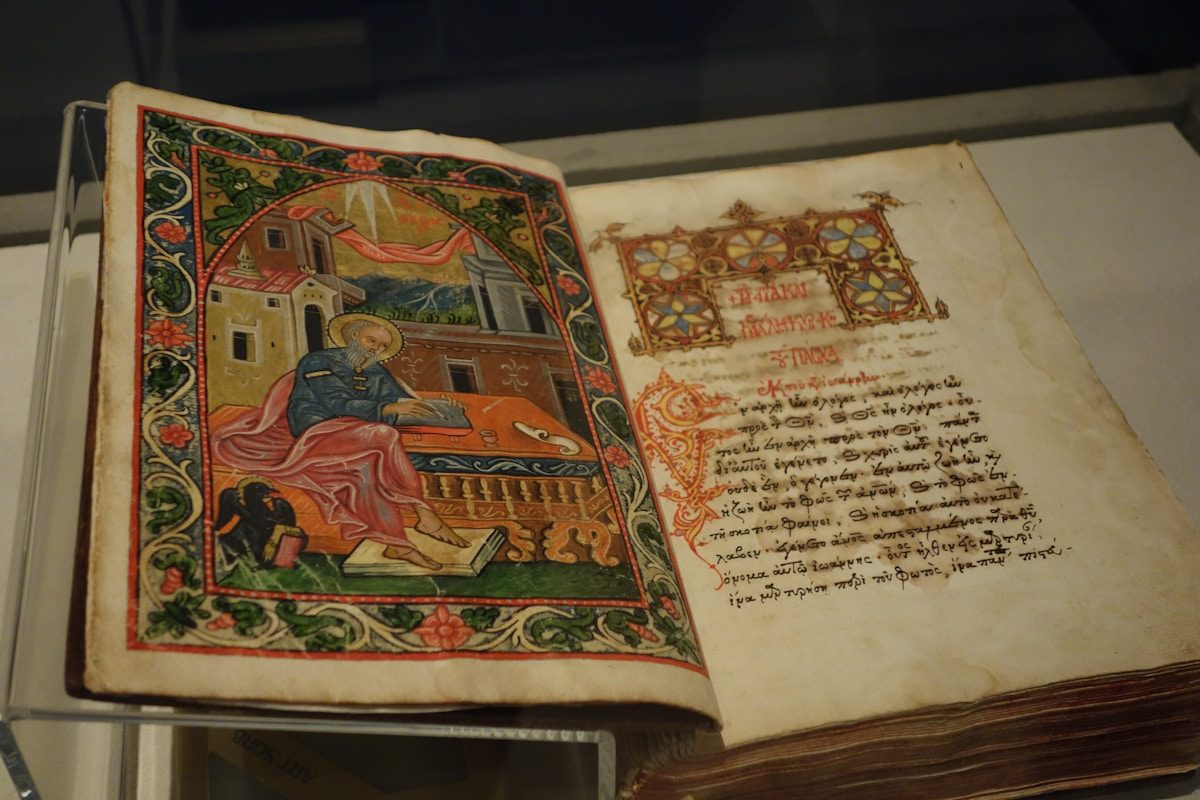 τοῦ πάσχα
ν ἀρχῇ ἦν ὁ λόγος, καὶ ὁ λόγος ἦν
πρὸς τ Θν, καὶ Θς ἦν ὁ λόγος· οὗ
τος ἦν ἐν ἀρχῇ πρὸς τὸν Θν. πάντ
δι αὐτοῦ ἐγένετο, καὶ χωρὶς αὐτ ἐγένετο
οὐδὲ ἓν, ὃ γέγονεν· ἐν αὐτῷ ζωὴ ἦν, κ
ἡ ζωὴ ἦν τὸ φῶς τ ἀνων, καὶ τὸ φῶς ἐν
τῇ σκοτίᾳ φαίνει, καὶ ἡ σκοτία αὐτὸ οὐ κατέ
λαβεν· ἐγένετο ἄνος ἀπεσταλμένος παρὰ θυ,
ὄνομα αὐτῷ ἰωάννης· οὗτος ἦλθεν εἰς μαρτυρί,
ἵνα μαρτυρήσῃ περὶ τοῦ φωτὸς, ἵνα πάν πιστ
ART SORB